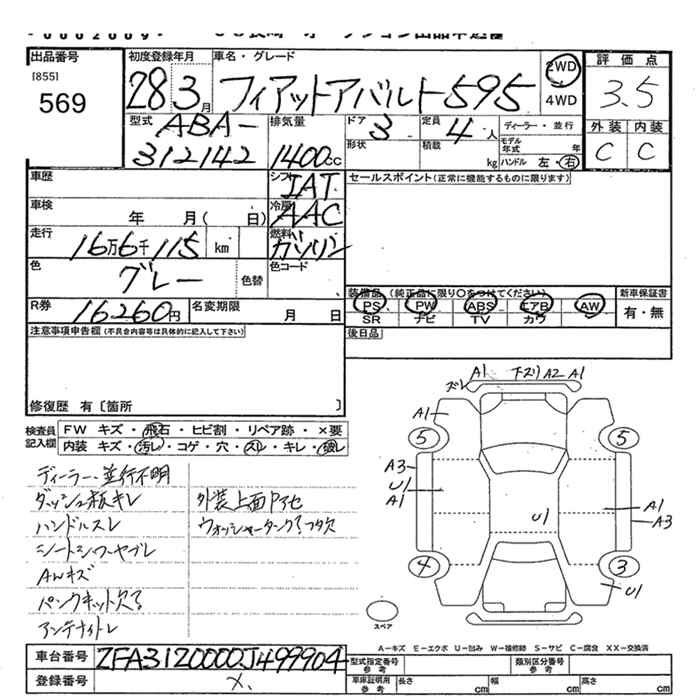 出品番号
[855]
569
初度登録年月
28 3月
車名・グレード
フィアットアバルト595
2WD
4WD
評価点
3.5
外装 内装
C C
型式
ABA-
312142
排気量
1400cc
ドア 3
形状
定員 4人
積載 kg
ディーラー・並行
モデル年式 年
ハンドル 左・右
車歴
シフト IAT
セールスポイント(正常に機能するものに限ります)
車検 年 月( 日)
冷房 AAC
走行 16万6千115 km
燃料 ガソリン
色 グレー 色替
色コード
装備品 (純正品に限り○をつけてください)
新車保証書
PS PW ABS エアB AW
SR ナビ TV カワ
有・無
R券 16260円
名変期限 月 日
後日品
注意事項申告欄(不具合内容等は具体的に記入して下さい)
修復歴 有〔箇所 〕
検査員記入欄
FW キズ・飛石・ヒビ割・リペア跡・×要
内装 キズ・汚レ・コゲ・穴・スレ・キレ・破レ
ディーラー・並行不明
ダッシュ板キレ
ハンドルスレ
シートシワ・ヤブレ
AWキズ
パンクキット欠品
アンテナトレ
外装上面Pアセ
ウォッシャータンクフタ欠
ズレ A1 キズリ A2 A1
A1
5 5
A3
U1
A1
U1
A1
A3
4 3
U1
スペア
A-キズ E-エクボ U-凹み W-補修跡 S-サビ C-腐食 XX-交換済
車台番号 ZFA3120000J499904
登録番号 X.
型式指定番号 参考
類別区分番号 参考
車庫証明用 参考
長さ cm 幅 cm 高さ cm